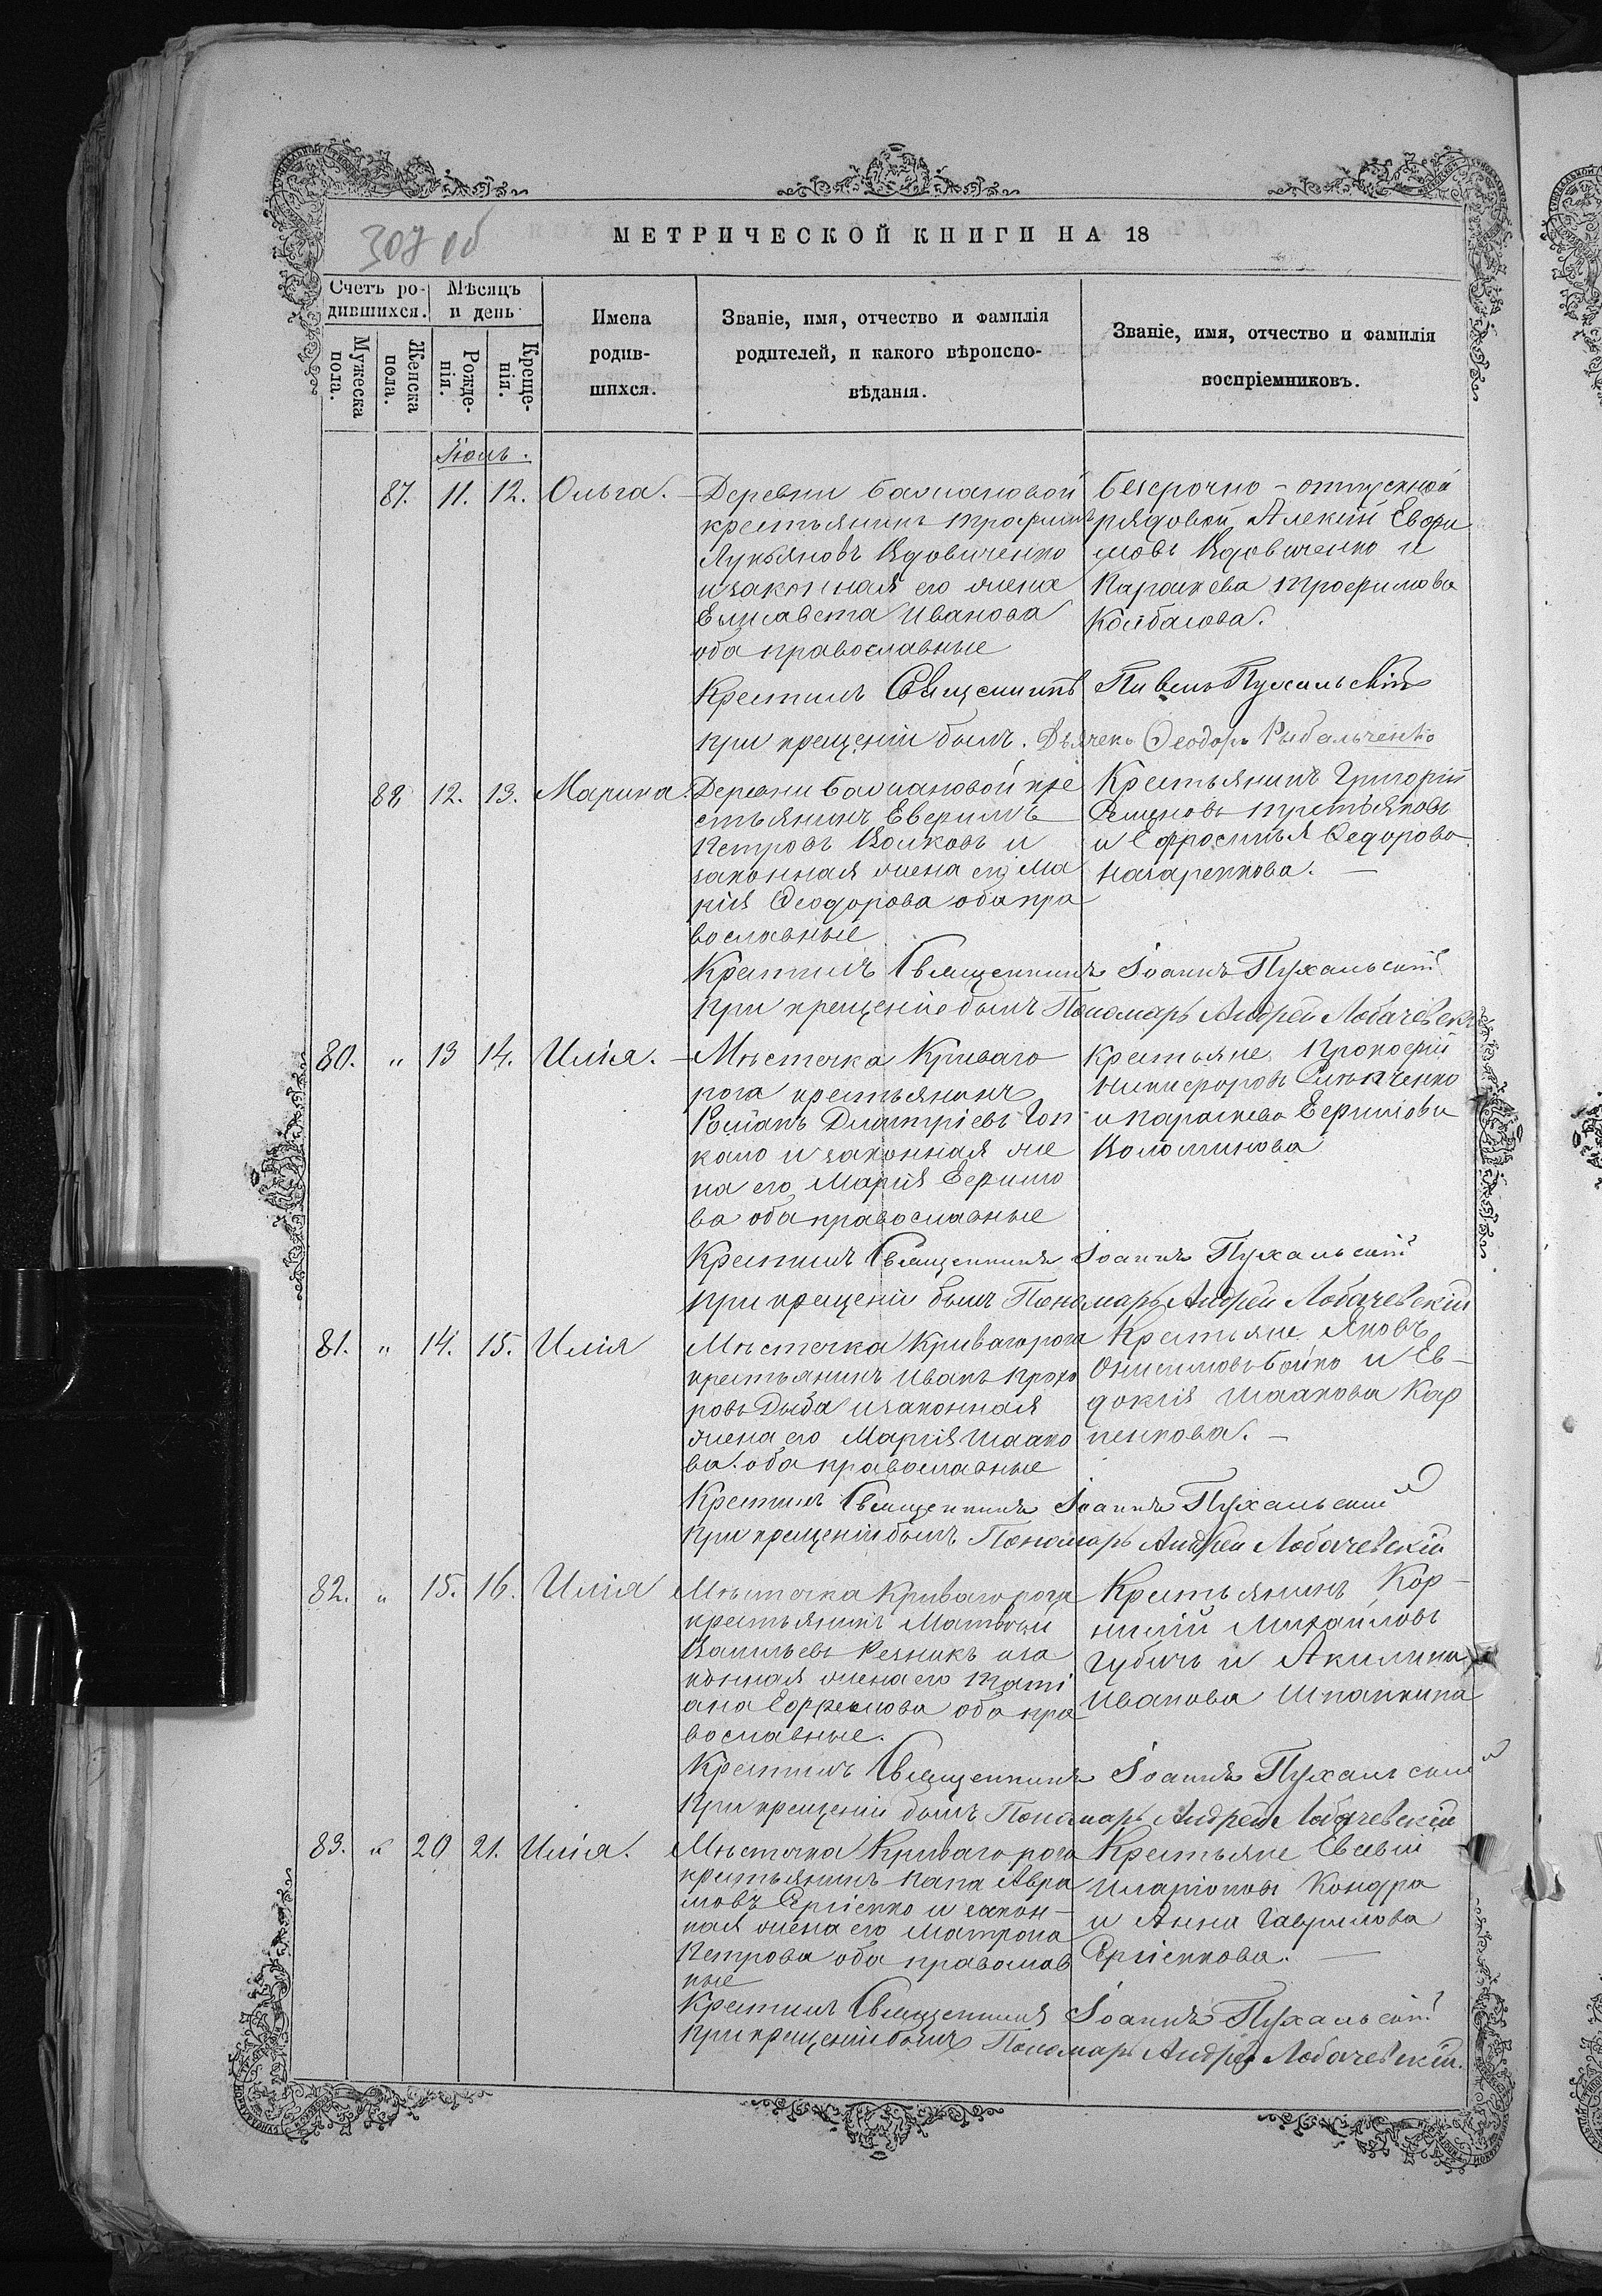 307 об
МЕТРИЧЕСКОЙ КНИГИ НА 18
Счетъ ро-
дившихся.
Мѣсяцъ
и день
Мужеска пола.
Женска пола.
Рожде-
нія.
Креще-
нія.
Имена
родив-
шихся.
Званіе, имя, отчество и фамилія
родителей, и какого вѣроиспо-
вѣданія.
Званіе, имя, отчество и фамилія
воспріемниковъ.
Іюль.
87. 11. 12. Ольга.
Деревни
крестьянинъ Трофимъ
Лукьяновъ Вдовиченко
и законная его жена
Елисавета Иванова
оба православные
Безсрочно-отпускной
рядовой Алексій Евфи
мовъ Вдовиченко и
Параскева Трофимова
Крестилъ Священникъ Павелъ Пухальскій
При крещеніи былъ Дьячекъ Ѳеодоръ Рыбальченко
88 12. 13. Марина.
Деревни кре
стьянинъ Евфимъ
Петровъ Волковъ и
законная жена его Ма
рія Ѳеодорова оба пра
вославные
Крестьянинъ Григорій
Семеновъ Третьяковъ
и Ефросинья Ѳедорова
Назаренкова.
Крестилъ Священникъ Іоаннъ Пухальскій
При крещеніе былъ Пономарь Андрей Лобачевск
80. " 13 14. Илія.
Мѣстечка Криваго
рога крестьянинъ
Романъ Дмитріевъ Гоп
кало и законная же
на его Марія Ефимо
ва оба православные
Крестьяне Прокофій
Никифоровъ
и Параскева Ефимова
Крестилъ Священникъ Іоаннъ Пухальскій
При крещеніи былъ Пономарь Андрей Лобачевскій
81. " 14. 15. Илія
Мѣстечка Кривагорога
крестьянинъ Иванъ Прохо
ровъ Дыба и законная
жена его Марія Исаако
ва. оба православные
Крестьяне Яковъ
Онисимовъ Бойко и Ев-
докія Исаакова Кар
пенкова.
Крестилъ Священникъ Іоаннъ Пухальскій
При крещеніи былъ Пономарь Андрей Лобачевскій
82. " 15. 16. Илія
Мѣстечка Кривагорога
крестьянинъ Матвѣй
Васильевъ Резникъ иза
конная жена его Таті
ана Ефремова оба пра
вославные.
Крестьянинъ Кор-
нилій Михайловъ
Губичъ и Акилина
Иванова Шпанкина
Крестилъ Священникъ Іоаннъ Пухальскій
При крещеніи былъ Пономарь Андрей Лобачевскій
83. " 20 21. Илія.
Мѣстечка Кривагорога
крестьянинъ Авра
мовъ Сергіенко и закон-
ная жена его Матрона
Петрова оба православ
ные
Крестьяне Евсевій
Иларіоновъ Кондра
и Анна Гаврилова
Сергіенкова.
Крестилъ Священникъ Іоаннъ Пухальскій
При крещеніи былъ Пономарь Андрей Лобачевскій.